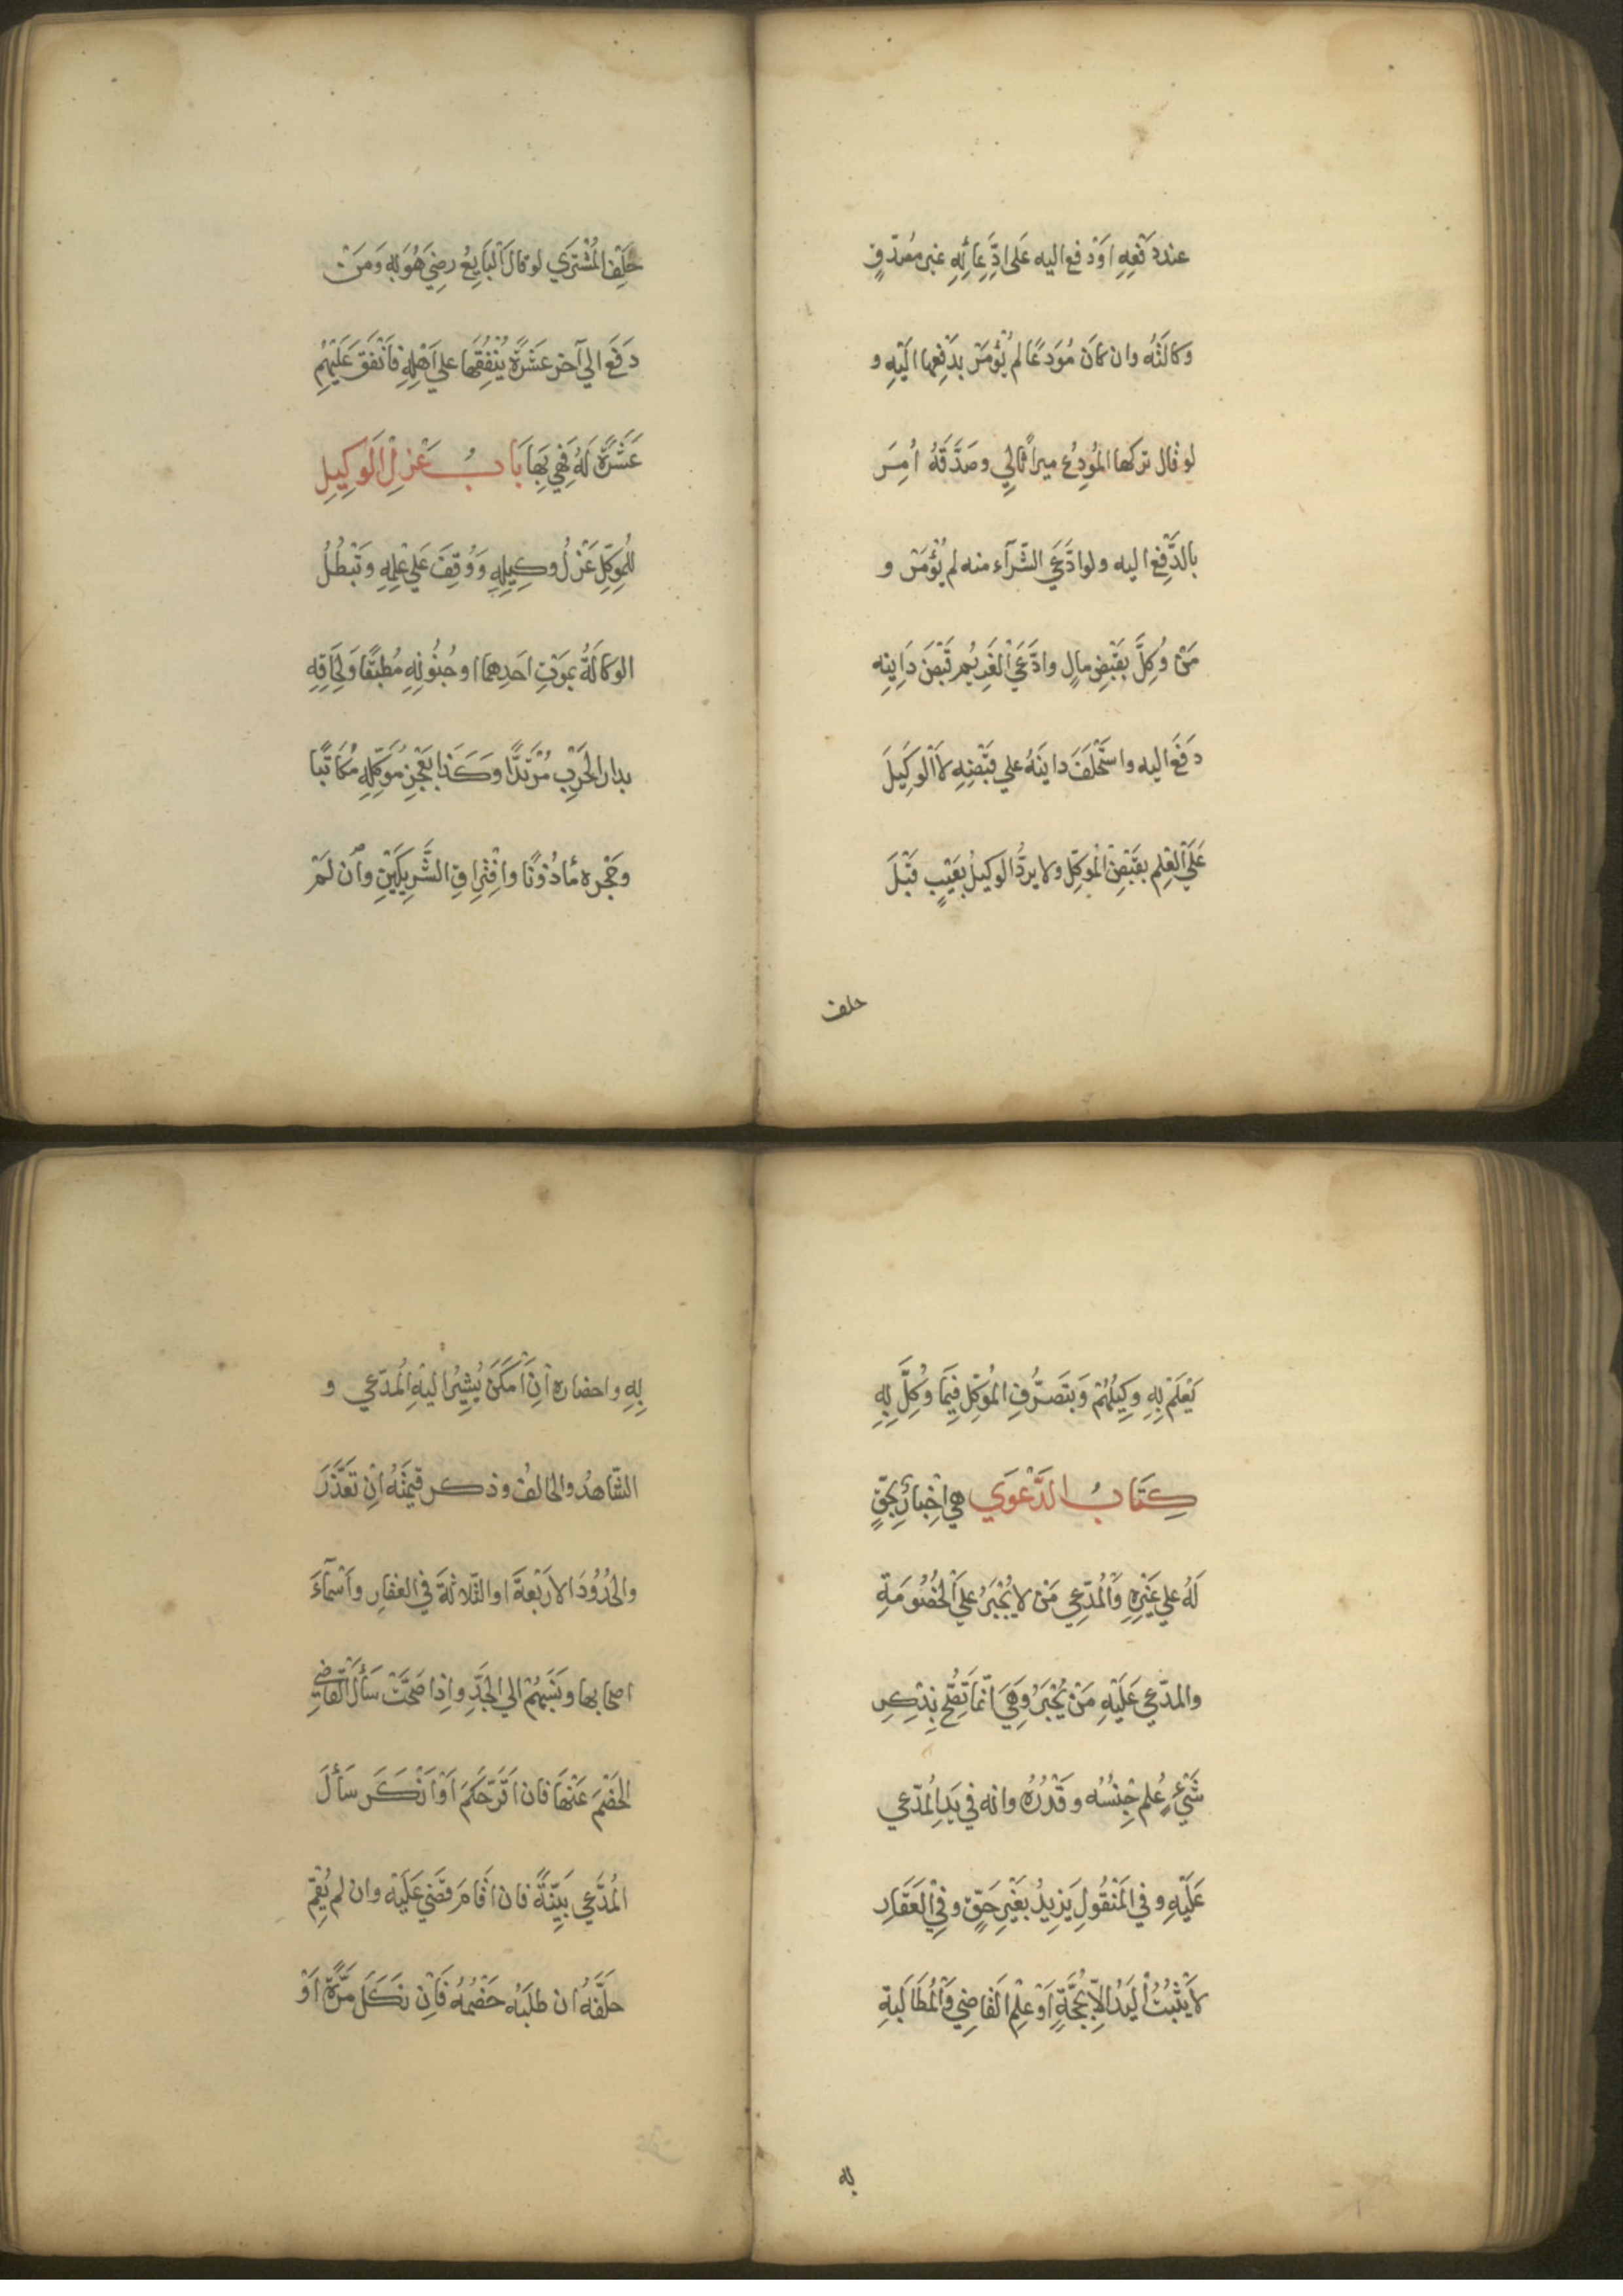 عند دَفْعِهِ اَوْ دفع اليه عَلى ادِّعَائِهِ غير مصدّقٍ
وكالَتَهُ وان كانَ مُوْدَعًا لم يُؤْمَرْ بِدَفْعِها اِلَيْهِ و
لو قال تركها المُوْدِعُ ميراثًا لي وصَدَّقَهُ اُمِرَ
بالدَّفْعِ اليه ولو ادَّعَي الشّرَآء منه لم يُؤْمَرْ و
مَنْ وُكِلَّ بقَبْضِ مالٍ وادَّعَي اَلْغَرِيْمر قَبْضَ دَايِنِهِ
دفَعَ اليه واسْتَحْلَفَ دايِنَهُ علي قَبْضِهِ لاَ اَلْوَكِيْلَ
عَلَي اَلْعِلْمِ بقَبْضِ اَلْمُوَكِّلِ ولا يردُّ الوكيلُ بعَيْبٍ قبْلَ
حلف
حَلِفِ المُشْتَرِي لو قال اَلْبَايِعُ رضِيَ هُوَ بِهِ وَمَنْ
دَفَعَ الي آخر عَشَرَةً يُنْفِقُها علي اَهْلِهِ فاَنْفَقَ عَلَيْهِمْ
عَشَرَةً لَهُ فَهِيَ بِهَا بَابُ عَزْلِ الْوَكِيْلِ
لِلْمُوَكِّلِ عَزْلُ وكِيْلِهِ وَوُقِفَ عَلي عِلْمِهِ وَتَبْطُلُ
الوكالَةُ بمَوْتِ اَحَدِهما او جُنُونِهِ مُطْبَقًا وَلِحَاقِهِ
بدار الحَرْبِ مُرْتَدًّا وَكَذَا بعَجْزِ مُوَكِّلِهِ مُكاتَبًا
وحَجْرِه مأذُوْنًا وافْتِرَاقِ الشَّرِيْكَيْنِ واْن لَمْ
يَعْلَمْ بِهِ وَكِيْلُهُمْ وَبتَصَرُّفِ المُوَكِّلِ فِيْمَا وُكِلَّ بِهِ
كِتَابُ الدَّعْوَي هي اِخْبارٌ بحقٍّ
لَهُ علي غَيْرِهِ وَاَلْمُدّعِي مَنْ لا يُجْبَرُ عَلَي اَلْخُصُوْمَةِ
والمدّعي عَلَيْهِ مَنْ يُجْبَرُ وَهِيَ انّما تَصِحُّ بِذِكِرِ
شَيْءٍ عُلِم جِنْسُه وقَدْرُهُ وانه في يَدِ اِلْمُدّعي
عَلَيْهِ وفي المَنْقُولِ يَزِيْدُ بغَيْرِ حَقٍّ وفي اَلْعَقَارِ
لا يَثْبُتُ اُلْيَدُ اِلاّ بحُجَّةٍ اَوْ عِلْمِ القَاضِي وَاَلْمُطَالَبَةِ
به
بِهِ واحضاره اْنِ اَمْكَنَ يُشِيْرُ اليْهِ اُلْمُدّعِي و
الشّاهدُ والحالفُ وذكر قيْمَتَهُ اْنِ تعَذَّرَ
والحُدُوْدَ الاَرْبَعَةَ او الثّلاثةَ في العقارِ واَسْمَآءَ
اصحابها ونَسَبَهُمْ الي الجَدِّ واِذا صَحَّتْ سَأَلَ اَلْقَاضِي
الخَصْمَ عَنْهَا فان اَقَرَّ حَكَمَ اَوْ اَنْكَرَ سَأَلَ
المُدّعِي بَيِّنَةً فان اقَامَ قضَي عَلَيْه وان لم يُقِمْ
حلَّفَهُ اْن طلَبَه خَصْمُهُ فَاْن نكَلَ مَرَّةً اَوْ